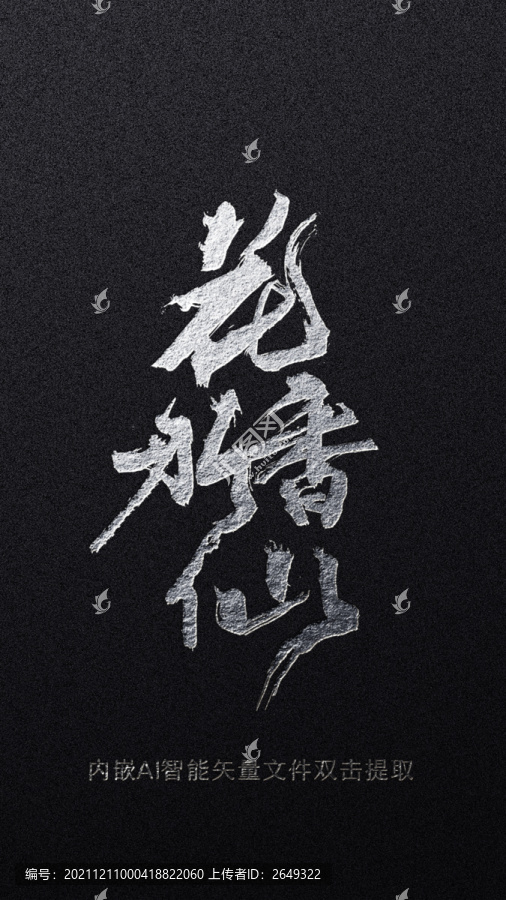 花
水香
仙
内嵌AI智能矢量文件双击提取
编号：20211211000418822060 上传者ID：2649322